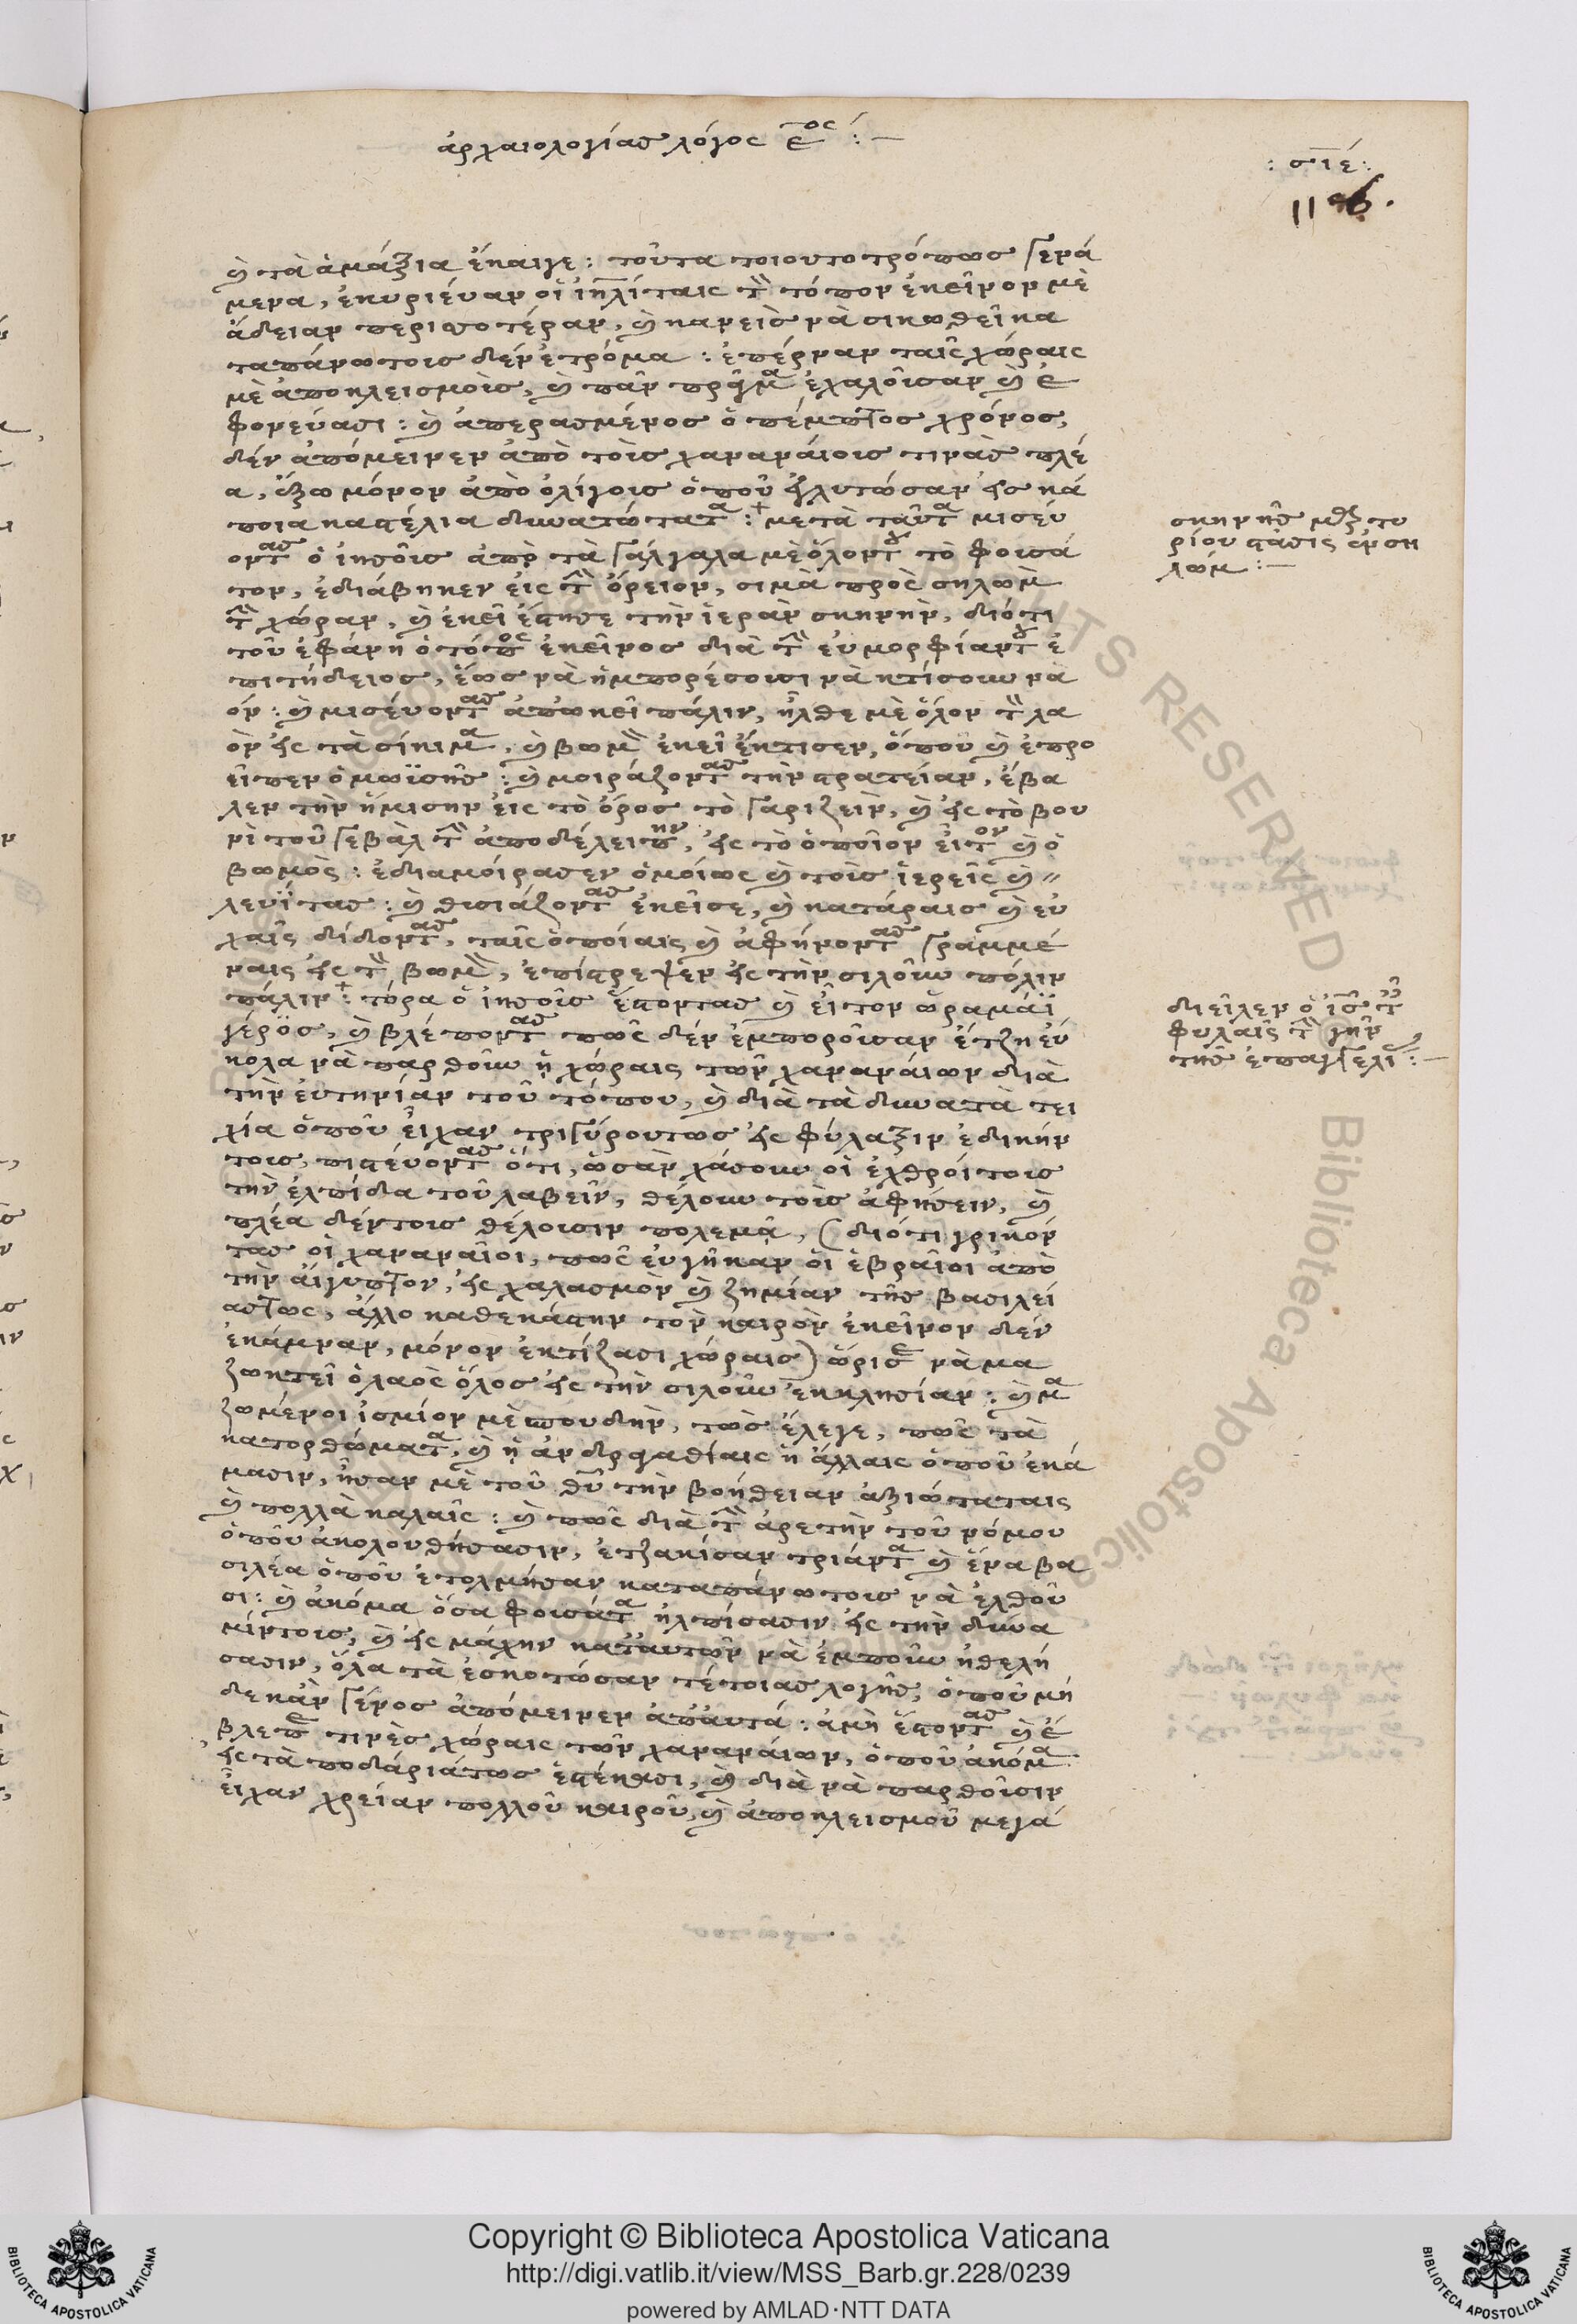 ἀρχαιολογίας λόγος ε^ος : —
: σιε :
116.
ὴ τὰ ἁμάξια ἔκαιγε : τοῦτα τοιουτοτρόπως γενά
μενα, ἐκυριέυαν οἱ ἰηλίταις τὸν τόπον ἐκεῖνον μὲ
ἄδειαν περισοτέραν, ὴ κανεὶς νὰ σικωθεῖ κα
ταπάνωτοις δὲν ἐτρόμα : ἐπέρναν ταῖς χώραις
μὲ ἀποκλεισμοὶς, ὴ πᾶν πρᾶγμα ἐχαλοῦσαν ὴ ἐ
φονεύασι : ὴ ἀπερασμένος ὁ πέμπτος χρόνος,
δὲν ἀπόμεινεν ἀπὸ τοὶς χαναναίοις τινὰς πλέ
α, ἔξω μόνον ἀπὸ ὀλίγοις ὁποῦ ἐγλυτώσαν ἐς κά
ποια καστέλια δυνατώτατα : μετὰ ταῦτα μισεύ
οντας ὁ ἰησοῖς ἀπὸ τὰ γάλγαλα μὲ ὅλον τὸ φοισά
τον, ἐδιάβηκεν εἰς τὸν ὄρειον, σιμὰ πρὸς σηλωμ
τὴν χώραν, ὴ ἐκεῖ ἔστησε τὴν ἱερὰν σκηνὴν, διότι
τοῦ ἐφάνη ὁ τόπος ἐκεῖνος διὰ τὴν ἐυμορφίαν του ἐ
πιτήδειος, ἕως νὰ ἡμπορέσοισι νὰ κτίσουν να
όν : ὴ μισέυοντας ἀπὠκεῖ πάλιν, ἦλθε μὲ ὅλον τὸν λα
ὸν ἐς τὰ σίκιμα, ὴ βωμὸν ἐκεῖ ἔκτισεν, ὁποῦ ὴ ἐπρο
εῖπεν ὁ μωϊσῆς : ὴ μοιράζοντας τὴν στρατείαν, ἔβα
λεν τὴν ἥμισην εἰς τὸ ὄρος τὸ γαριζεὶν, ὴ ἐς τὸ βου
νὶ τοῦ γεβὰλ τὴν ἀποδέλειπην, ἐς τὸ ὁποῖον εἶτον ὴ ὁ
βωμὸς : ἐδιαμοίρασεν ὁμοίως ὴ τοὶς ἱερεῖς ὴ
λευΐτας : ὴ θισιάζοντας ἐκεῖσε, ὴ κατάραις ὴ ἐυ
χαῖς δίδοντας, ταῖς ὁποίαις ὴ ἀφήνοντας γραμμέ
ναις ἐς τὸν βωμὸν, ἐπίστρεψεν ἐς τὴν σιλοῦν πόλιν
πάλιν : τόρα ὁ ἰησοῖς ἔστοντας ὴ εἶτον
γέρος, ὴ βλέποντας πῶς δὲν ἐμποροῦσαν ἔτζη ἐύ
κολα νὰ παρθοῦν ἡ χώραις τῶν χαναναίων διὰ
τὴν ὀχηρίαν τοῦ τόπου, ὴ διὰ τὰ δυνατὰ τει
χία ὁποῦ εἶχαν τριγύρουτως ἐς φύλαξιν ἐδικήν
τοις, πιστέυοντας ὅτι, ὡσὰν χάσουν οἱ ἐχθροί τοις
τὴν ἐλπίδα τοῦ λαβεῖν, θέλουν τοὶς ἀφήσειν, ὴ
πλέα δέντοις θέλοισιν πολεμᾶ, (διότι γρικόν
τας οἱ χαναναῖοι, πῶς ἐυγῆκαν οἱ ἑβραῖοι ἀπὸ
τὴν ἀίγυπτον, ἐς χαλασμὸν ὴ ζημίαν τῆς βασιλεί
αςτως, ἄλλο καθεκάστην τὸν καιρὸν ἐκεῖνον δὲν
ἐκάμναν, μόνον ἐκτίζασι χώραις) ὥρισε νὰ μα
ζωκτεῖ ὁ λαὸς ὅλος ἐς τὴν σιλοῦν ἐκκλησίαν : ὴ μα
ζωμένοι ἰσμίον μὲ σπουδὴν, τῶς ἔλεγε, πῶς τὰ
κατορθώματα, ὴ ἡ ἀνδραγαθίαις ἡ ἄλλαις ὁποῦ ἐκά
μασιν, ἦσαν μὲ τοῦ θῦ τὴν βοήθειαν ἀξιώταταις
ὴ πολλὰ καλαῖς : ὴ πῶς διὰ τὴν ἀρετὴν τοῦ νόμου
ὁποῦ ἀκολουθήσασιν, ἐτζακίσαν τριάντα ὴ ἕνα βα
σιλέα ὁποῦ ἐτολμήσαν καταπάνωτοις νὰ ἐλθοῦ
σι : ὴ ἀκόμα ὅσα φοισάτα ἠλπίσασιν ἐς τὴν δύνα
μίντοις, ὴ ἐς μάχην κατἀυτῶν νὰ ἐμποῦν ἠθελή
σασιν, ὅλα τὰ ἐσκοτώσαν τέτοιας λογῆς, ὁποῦ μή
δε κἂν γένος ἀπόμεινεν ἀπἀυτά : ἀμὴ ἔστοντας ὴ ἔ
βλεπε τινὲς χώραις τῶν χαναναίων, ὁποῦ ἀκόμα
ἐς τὰ ποδάριάτως ἐστέκασι, ὴ διὰ νὰ παρθοῦσιν
εἶχαν χρείαν πολλοῦ καιροῦ, ὴ ἀποκλεισμοῦ μεγά
σκηνῆς
ρίου στάσις ἐν ση
λώμ : —
διεῖλεν ὁ ἰσῦς τ
φυλαῖς τὴν γῆν
τῆς ἐπαγγελί : —
Copyright © Biblioteca Apostolica Vaticana
http://digi.vatlib.it/view/MSS_Barb.gr.228/0239
powered by AMLAD·NTT DATA
BIBLIOTECA APOSTOLICA VATICANA
BIBLIOTECA APOSTOLICA VATICANA